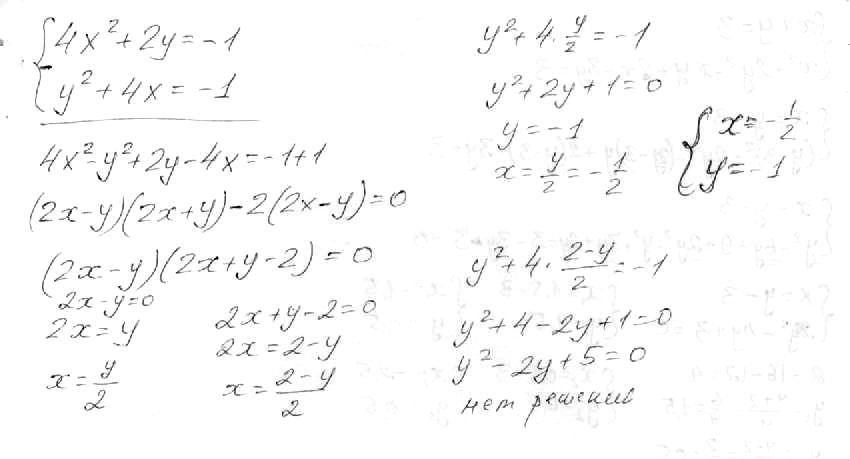 {4x²+2y=-1
{y²+4x=-1
4x²-y²+2y-4x=-1+1
(2x-y)(2x+y)-2(2x-y)=0
(2x-y)(2x+y-2)=0
2x-y=0
2x=y
x=y/2
2x+y-2=0
2x=2-y
x=(2-y)/2
y²+4·y/2=-1
y²+2y+1=0
y=-1
x=y/2=-1/2
{x=-1/2
{y=-1
y²+4·(2-y)/2=-1
y²+4-2y+1=0
y²-2y+5=0
нет решений